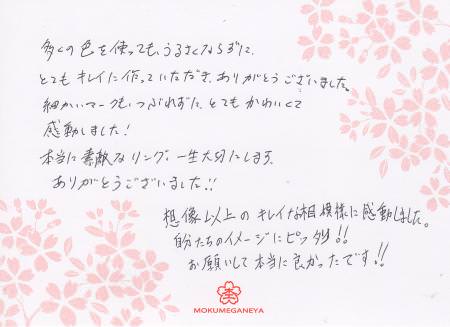 多くの色を使っても、うるさくならずに、
とてもキレイに作っていただき、ありがとうございました。
細かいマークも、つぶれずに、とてもかわいくて
感動しました!
本当に素敵なリング、一生大切にします。
ありがとうございました!!
想像以上のキレイな相模様に感動しました。
自分たちのイメージにピッタリ!!
お願いして本当に良かったです!!
MOKUMEGANEYA